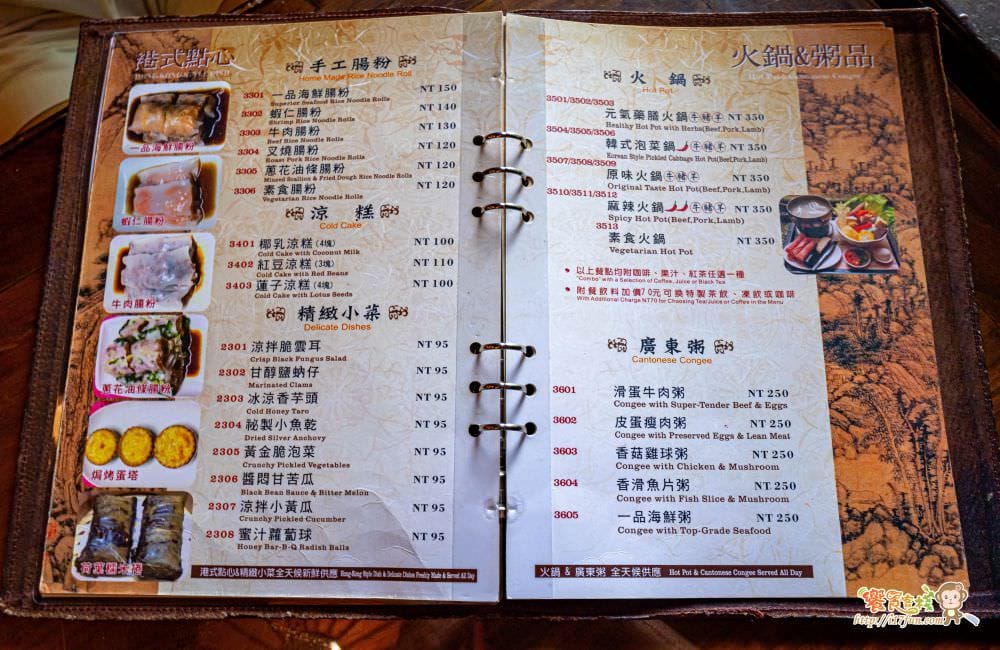 港式點心
手工腸粉
Home Made Rice Noodle Roll
3301 一品海鮮腸粉 NT 150
Superior Seafood Rice Noodle Rolls
3302 蝦仁腸粉 NT 140
Shrimp Rice Noodle Rolls
3303 牛肉腸粉 NT 130
Beef Rice Noodle Rolls
3304 叉燒腸粉 NT 120
Roast Pork Rice Noodle Rolls
3305 蔥花油條腸粉 NT 120
Minced Scallion & Fried Dough Rice Noodle Rolls
3306 素食腸粉 NT 120
Vegetarian Rice Noodle Rolls
涼糕
Cold Cake
3401 椰乳涼糕(4塊) NT 100
Cold Cake with Coconut Milk
3402 紅豆涼糕(3塊) NT 110
Cold Cake with Red Beans
3403 蓮子涼糕(4塊) NT 100
Cold Cake with Lotus Seeds
精緻小菜
Delicate Dishes
2301 涼拌脆雲耳 NT 95
Crisp Black Fungus Salad
2302 甘醇鹽蚋仔 NT 95
Marinated Clams
2303 冰涼香芋頭 NT 95
Cold Honey Taro
2304 祕製小魚乾 NT 95
Dried Silver Anchovy
2305 黃金脆泡菜 NT 95
Crunchy Pickled Vegetables
2306 醬悶甘苦瓜 NT 95
Black Bean Sauce & Bitter Melon
2307 涼拌小黃瓜 NT 95
Crunchy Pickled Cucumber
2308 蜜汁蘿蔔球 NT 95
Honey Bar-B-Q Radish Balls
港式點心&精緻小菜全天候新鮮供應 Hong-Kong Style Dish & Delicate Dishes Freshly Made & Served All Day
一品海鮮腸粉
蝦仁腸粉
牛肉腸粉
蔥花油條腸粉
焗烤蛋塔
荷葉糯米雞
火鍋&粥品
Hot Pot & Cantonese Congee
火鍋
Hot Pot
3501/3502/3503
元氣藥膳火鍋 牛豬羊 NT 350
Healthy Hot Pot with Herbs(Beef,Pork,Lamb)
3504/3505/3506
韓式泡菜鍋 牛豬羊 NT 350
Korean Style Pickled Cabbage Hot Pot(Beef,Pork,Lamb)
3507/3508/3509
原味火鍋 牛豬羊 NT 350
Original Taste Hot Pot(Beef,Pork,Lamb)
3510/3511/3512
麻辣火鍋 牛豬羊 NT 350
Spicy Hot Pot(Beef,Pork,Lamb)
3513
素食火鍋 NT 350
Vegetarian Hot Pot
以上餐點均附咖啡、果汁、紅茶任選一種
"Combo" with a Selection of Coffee, Juice or Black Tea
附餐飲料加價70元可換特製茶飲、凍飲或咖啡
With Additional Charge NT70 for Choosing Tea/Juice or Coffee in the Menu
廣東粥
Cantonese Congee
3601 滑蛋牛肉粥 NT 250
Congee with Super-Tender Beef & Eggs
3602 皮蛋瘦肉粥 NT 250
Congee with Preserved Eggs & Lean Meat
3603 香菇雞球粥 NT 250
Congee with Chicken & Mushroom
3604 香滑魚片粥 NT 250
Congee with Fish Slice & Mushroom
3605 一品海鮮粥 NT 250
Congee with Top-Grade Seafood
火鍋 & 廣東粥 全天候供應 Hot Pot & Cantonese Congee Served All Day
饗食天棧
http://i17fun.com/